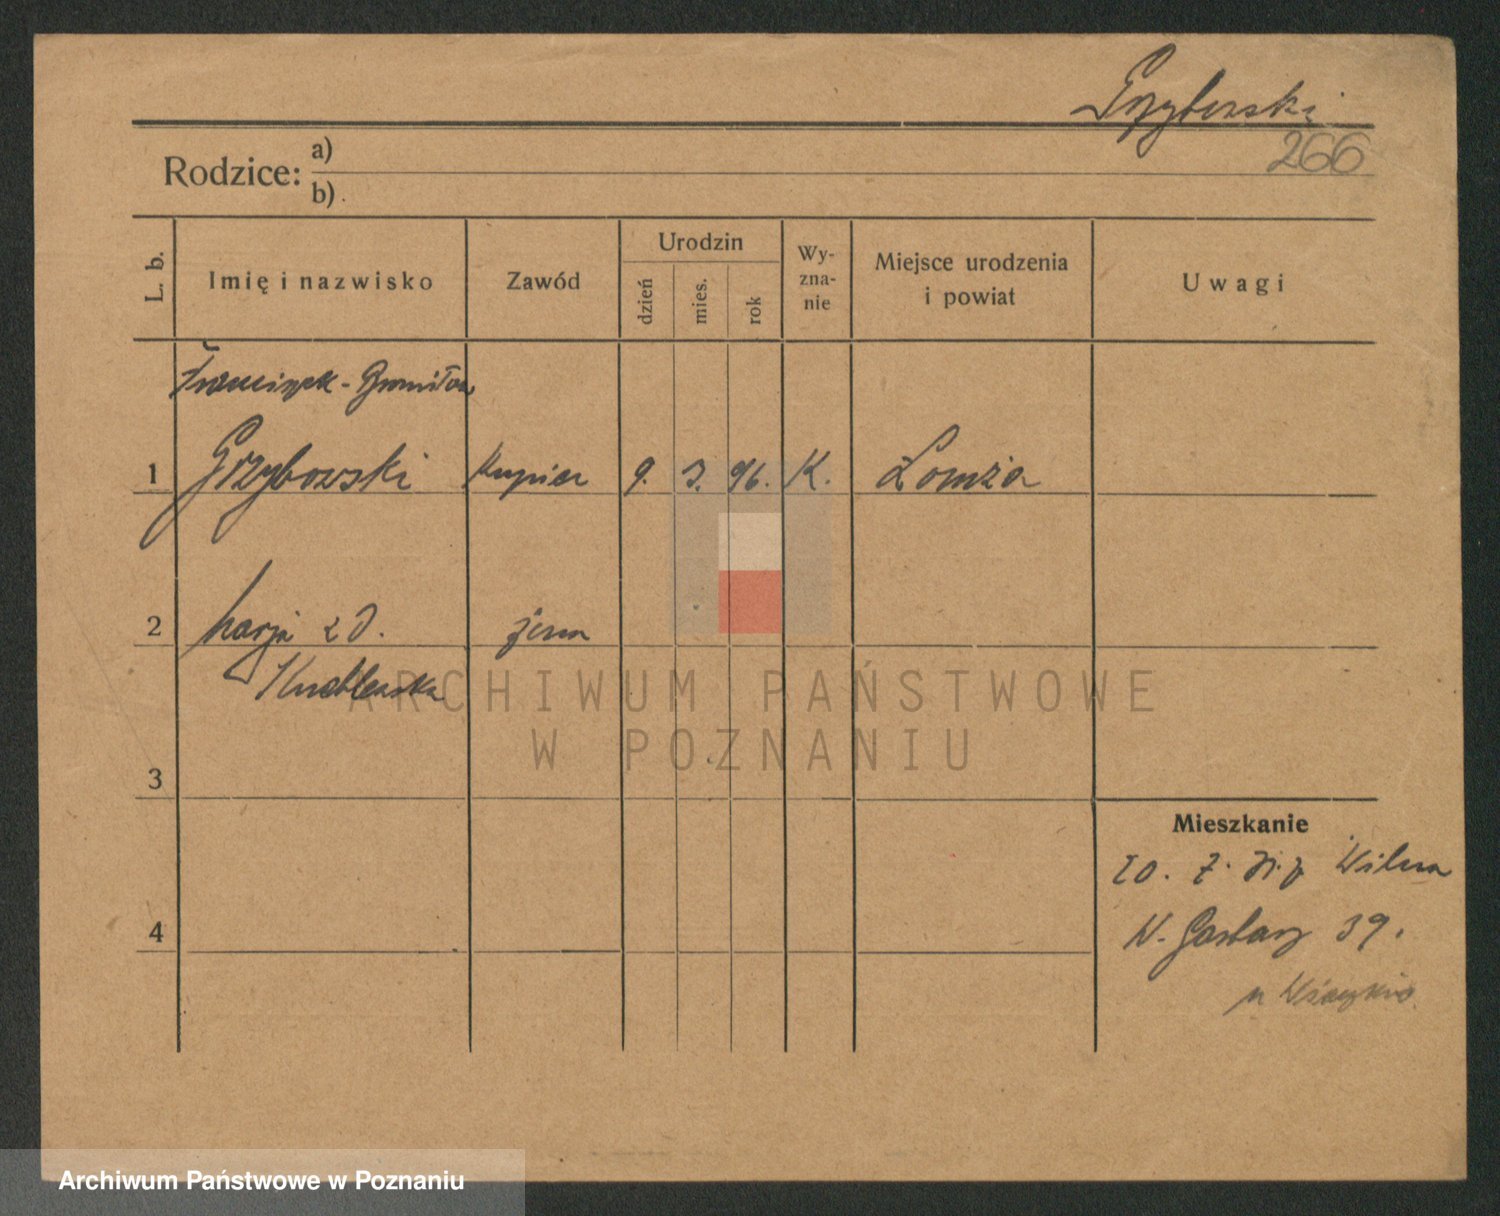 Grzybowski
266
Rodzice: a)
b)
L. b.
Imię i nazwisko
Zawód
Urodzin
dzień
mies.
rok
Wy-
zna-
nie
Miejsce urodzenia
i powiat
Uwagi
Franciszek-
1 Grzybowski Kupiec 9. 3. 96. K. Łomża
2 Marja z D. żona
3
4
Mieszkanie
20. Wilna
W. Garbary 39.
ARCHIWUM PAŃSTWOWE
W POZNANIU
Archiwum Państwowe w Poznaniu